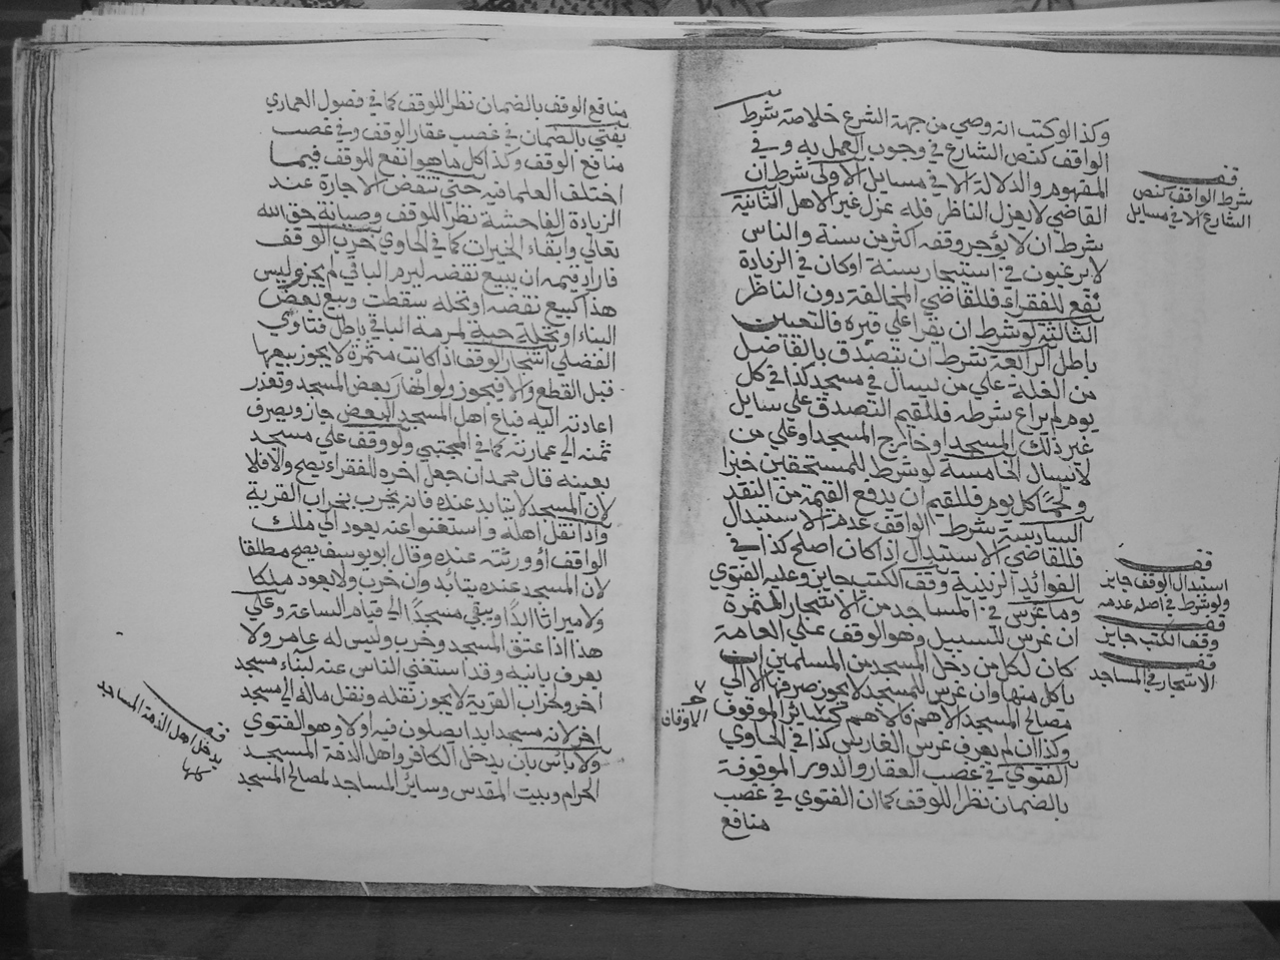 وكذا لو كتب انه وصي من جهة الشرع خلاصة شرط
الواقف كنص الشارع في وجوب العمل به وفي
المفهوم والدلالة الا في مسايل الاولى شرط ان
القاضي لا يعزل الناظر فله عزل غير الاهل الثانية
شرط ان لا يؤجر وقفه اكثر من سنة والناس
لا يرغبون في استيجار سنة او كان في الزيادة
نفع للفقراء فللقاضي المخالفة دون الناظر
الثالثة لو شرط ان يقرا علي قبره فالتعيين
باطل الرابعة شرط ان يتصدق بالفاضل
من الغلة علي من يسال في مسجد كذا في كل
يوم لم يراع شرطه فللقيم التصدق علي سايل
غير ذلك المسجد او خارج المسجد او علي من
لا يسال الخامسة لو شرط للمستحقين خبزا
ولحما كل يوم فللقيم ان يدفع القيمة من النقد
السادسة شرط الواقف عدم الاستبدال
فللقاضي الاستبدال اذا كان اصلح كذا في
الفوائد الزينية وقف الكتب جايز وعليه الفتوي
وما غرس في المساجد من الاشجار المثمرة
ان غرس للسبيل وهو الوقف علي العامة
كان لكل من دخل المسجد من المسلمين ان
ياكل منها وان غرس للمسجد لا يجوز صرفها الا الي
مصالح المسجد الاهم فالاهم كسائر الموقوف
وكذا ان لم يعرف غرس الغارس كذا في الحاوي
الفتوي في غصب العقار والدور الموقوفة
بالضمان نظرا للوقف كما ان الفتوي في غصب
منافع
قف
شرط الواقف كنص
الشارع الا في مسايل
قف
استبدال الوقف جايز
ولو شرط في اصله عدمه
قف
وقف الكتب جايز
قف
الاشجار في المساجد
الاوقاف
منافع الوقف بالضمان نظرا للوقف كما في فصول العمادي
يفتي بالضمان في غصب عقار الوقف وفي غصب
منافع الوقف وكذا كل ما هو انفع للوقف فيما
اختلف العلما فيه حتي تنقض الاجارة عند
الزيادة الفاحشة نظرا للوقف وصيانة حق الله
تعالي وابقاء الخيرات كما في الحاوي خرب الوقف
فاراد قيمه ان يبيع نقضه ليرم الباقي لم يجز وليس
هذا كبيع نقضه او نخله سقطت وبيع بعض
البناء او نخلة حية لمرمة الباقي باطل فتاوي
الفضلي اشجار الوقف اذا كانت مثمرة لا يجوز بيعها
قبل القطع والا فيجوز ولو انهار بعض المسجد وتعذر
اعادته اليه فباع اهل المسجد البعض جاز ويصرف
ثمنه الي عمارته كما في المجتبي ولو وقف علي مسجد
بعينه قال محمد ان جعل اخره للفقراء يصح والا فلا
لان المسجد لا يتابد عنده فانه يخرب بخراب القرية
واذا نقل اهله واستغنوا عنه يعود الي ملك
الواقف او ورثته عنده وقال ابو يوسف يصح مطلقا
لان المسجد عنده يتابد وان خرب ولا يعود ملكا
ولا ميراثا ابدا ويبقي مسجدا الي قيام الساعة وعلي
هذا اذا عتق المسجد وخرب وليس له عامر ولا
يعرف بانيه وقد استغني الناس عنه لبناء مسجد
اخر ولخراب القرية لا يجوز نقله ونقل ماله الي مسجد
اخر لانه مسجد ابدا يصلون فيه او لا وهو الفتوي
ولا باس بان يدخل الكافر واهل الذمة المسجد
الحرام وبيت المقدس وسائر المساجد لمصالح المسجد
قف
يدخل اهل الذمة المساجد